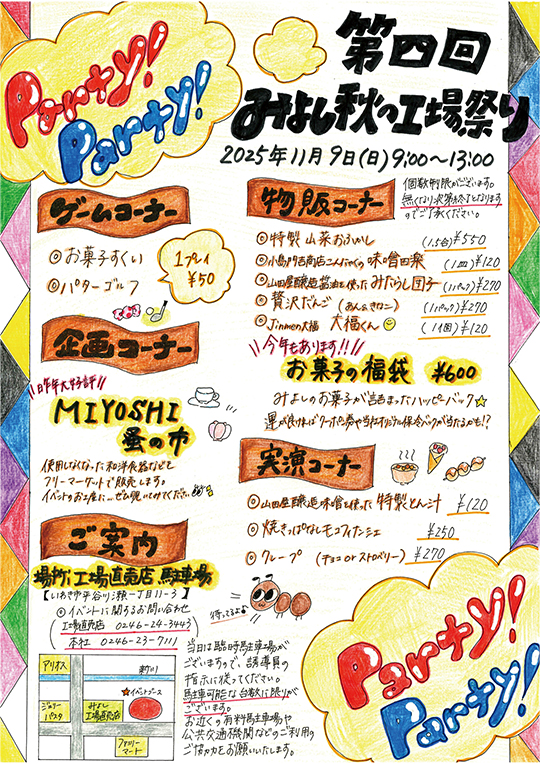 Party!
Party!
第四回
みよし秋の工場祭り
2025年11月9日(日) 9:00〜13:00
ゲームコーナー
◎お菓子すくい
◎パターゴルフ
1プレイ
¥50
企画コーナー
昨年大好評
MIYOSHI
蚤の市
使用しなくなった和洋食器などを
フリーマーケットで販売します。
物販コーナー
個数制限がございます。
無くなり次第終了となります
のでご了承ください。
◎特製 山菜おふかし (1.5合) ¥550
◎小島門吉商店こんにゃくの味噌田楽 (1皿) ¥120
◎山田屋醸造醤油を使ったみたらし団子 (1パック) ¥270
◎贅沢だんご (あん&きなこ) (1パック) ¥270
◎Jinmeの大福 大福くん (1個) ¥120
今年もあります!!!
お菓子の福袋 ¥600
みよしのお菓子が詰まったハッピーバック☆
運が良ければクーポン券や当社オリジナル保冷バックが当たるかも!?
実演コーナー
◎山田屋醸造味噌を使った 特製とん汁 ¥120
◎焼きっぱなしモコフィナンシェ ¥250
◎クレープ (チョコorストロベリー) ¥270
ご案内
場所:工場直売店 駐車場
【いわき市平谷川瀬一丁目11-3】
◎イベントに関するお問い合わせ
(工場直売店 0246-24-3443)
(本社 0246-23-7111)
待ってるよぉ
当日は臨時駐車場が
ございますので、誘導員の
指示に従ってください。
駐車可能な台数に限りが
ございます。
お近くの有料駐車場や
公共交通機関などのご利用の
ご協力をお願いいたします。
アリオス
新川
★イベントブース
ジョリーパスタ
みよし
工場直売店
ファミリーマート
Party!
Party!